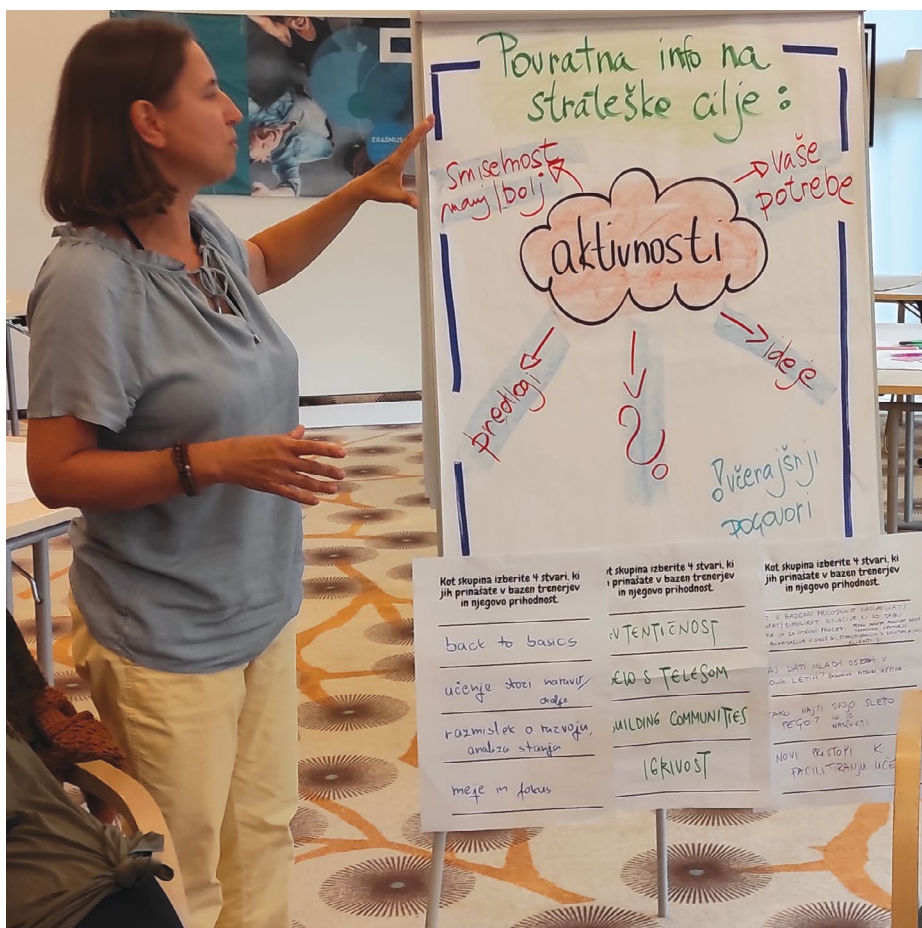 Povratna info na
strateške cilje :
EXASMUS
Smiselnost
manj/bolj
vaše
potrebe
aktivnosti
predlogi
?
ideje
! včerajšnji
pogovori
Kot skupina izberite 4 stvari, ki
jih prinašate v bazen trenerjev
in njegovo prihodnost.
back to basics
učenje skozi naravo/
okolje
razmislek o razvoju,
analiza stanja
meje in fokus
ot skupina izberite 4 stvari, ki
h prinašate v bazen trenerjev
in njegovo prihodnost.
VTENTIČNOST
DELO S TELESOM
BUILDING COMMUNITIES
IGRIVOST
ot skupina izberite 4 stvari, ki
jih prinašate v bazen trenerjev
in njegovo prihodnost.
SITUACIJE KI SO TABU
AJ DATI MLADI OSEBI V
LETIH?
KAKO NAJTI SVOJO SLEPO
PEGO? IN JO
NASLOVITI
NOVI PRISTOPI K
FACILITIRANJU UČE